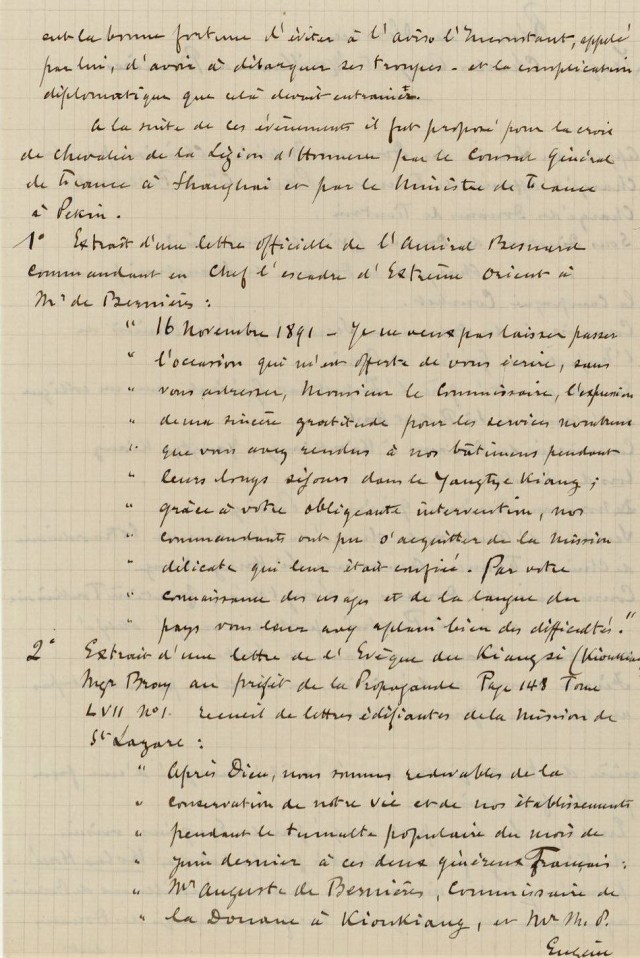 eut la bonne fortune d'éviter à l'aviso l'Inconstant, appelé
par lui, d'avoir à débarquer ses troupes - et la complication
diplomatique que celà devait entrainer.
A la suite de ces événements il fut proposé pour la croix
de chevalier de la Légion d'Honneur par le Consul Général
de France à Shanghai et par le Ministre de France
à Pekin.
1° Extrait d'une lettre officielle de l'Amiral Besnard
Commandant en Chef l'escadre d'Extrême Orient à
Mr de Bernières :
" 16 Novembre 1891 - Je ne veux pas laisser passer
" l'occasion qui m'est offerte de vous écrire, sans
" vous adresser, Monsieur le Commissaire, l'expression
" de ma sincère gratitude pour les services nombreux
" que vous avez rendus à nos bâtiments pendant
" leurs longs séjours dans le Yangtze Kiang ;
" grâce à votre obligeante intervention, nos
" commandants ont pu s'acquitter de la mission
" délicate qui leur était confiée. Par votre
" connaissance des usages et de la langue du
" pays vous leur avez aplani bien des difficultés."
2° Extrait d'une lettre de l'Evêque du Kiangsi (Kioukiang
Mgr Bray au préfet de la Propagande Page 148 Tome
LVII N°1. recueil de lettres édifiantes de la Mission de
St Lazare :
" Après Dieu, nous sommes redevables de la
" conservation de notre vie et de nos établissements
" pendant le tumulte populaire du mois de
" Juin dernier à ces deux généreux Français :
" Mr Auguste de Bernières, Commissaire de
" la Douane à Kioukiang, et Mr M. P.